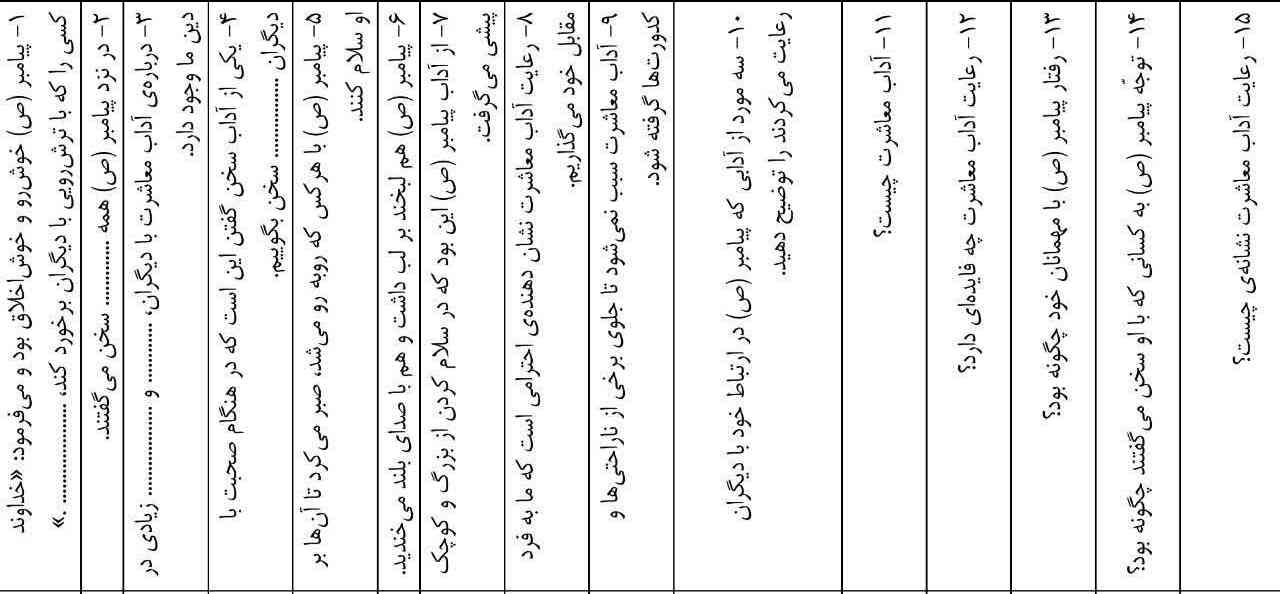 ۱- پیامبر (ص) خوش‌رو و خوش‌اخلاق بود و می‌فرمود: «خداوند
کسی را که با ترش‌رویی با دیگران برخورد کند، .................... .»
۲- در نزد پیامبر (ص) همه .............. سخن می‌گفتند.
۳- درباره‌ی آداب معاشرت با دیگران، ............ و .................. زیادی در
دین ما وجود دارد.
۴- یکی از آداب سخن گفتن این است که در هنگام صحبت با
دیگران .................. سخن بگوییم.
۵- پیامبر (ص) با هرکس که روبه رو می‌شد، صبر می‌کرد تا آن‌ها بر
او سلام کنند.
۶- پیامبر (ص) هم لبخند بر لب داشت و هم با صدای بلند می‌خندید.
۷- از آداب پیامبر (ص) این بود که در سلام کردن از بزرگ و کوچک
پیشی می‌گرفت.
۸- رعایت آداب معاشرت نشان دهنده‌ی احترامی است که ما به فرد
مقابل خود می‌گذاریم.
۹- آداب معاشرت سبب نمی‌شود تا جلوی برخی از ناراحتی‌ها و
کدورت‌ها گرفته شود.
۱۰- سه مورد از آدابی که پیامبر (ص) در ارتباط خود با دیگران
رعایت می‌کردند را توضیح دهید.
۱۱- آداب معاشرت چیست؟
۱۲- رعایت آداب معاشرت چه فایده‌ای دارد؟
۱۳- رفتار پیامبر (ص) با مهمانان خود چگونه بود؟
۱۴- توجّه پیامبر (ص) به کسانی که با او سخن می‌گفتند چگونه بود؟
۱۵- رعایت آداب معاشرت نشانه‌ی چیست؟